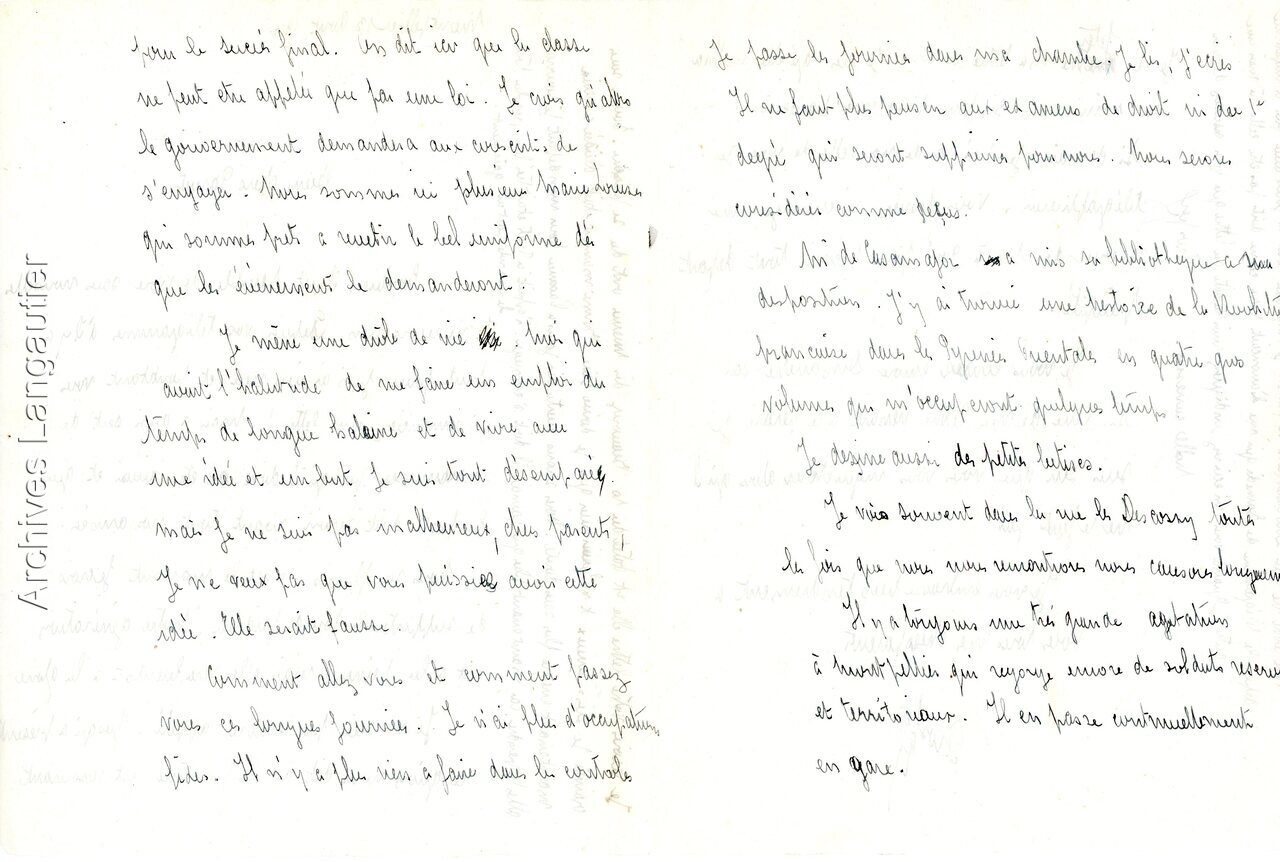 pour le succès final. On dit ici que la classe
ne peut etre appelée que par une loi. Je crois qu'alors
le gouvernement demandera aux conscrits de
s'engager. Nous sommes ici plusieurs Marie Louise
qui sommes prets a revetir le bel uniforme dès
que les évènements le demanderont.
Je mène une drôle de vie. Moi qui
avait l'habitude de me faire un emploi du
temps de longue haleine et de vivre avec
une idée et un but je suis tout désemparé,
mais je ne suis pas malheureux, chers parents,
Je ne veux pas que vous puissiez avoir cette
idée. Elle serait fausse.
Comment allez vous et comment passez
vous ces longues journées. Je n'ai plus d'occupations
fixes. Il n'y a plus rien a faire dans les controles
Je passe les journées dans ma chambre. Je lis, j'écris
Il ne faut plus penser aux examens de droit ni de
qui seront supprimés pour nous. Nous serons
considérés comme reçus.
Mr de Casamajor a mis sa bibliothèque a
disposition. J'y ai trouvé une histoire de la Révolution
française dans les Pyrenées Orientales en quatre gros
volumes qui m'occuperont quelques temps
Je dessine aussi des petites betises.
Je vois souvent dans la rue les Descossy toutes
les fois que nous nous rencontrons nous causons longuement
Il y a toujours une très grande agitation
à Montpellier qui regorge encore de soldats
et territoriaux. Il en passe continuellement
en gare.
Archives Langautier